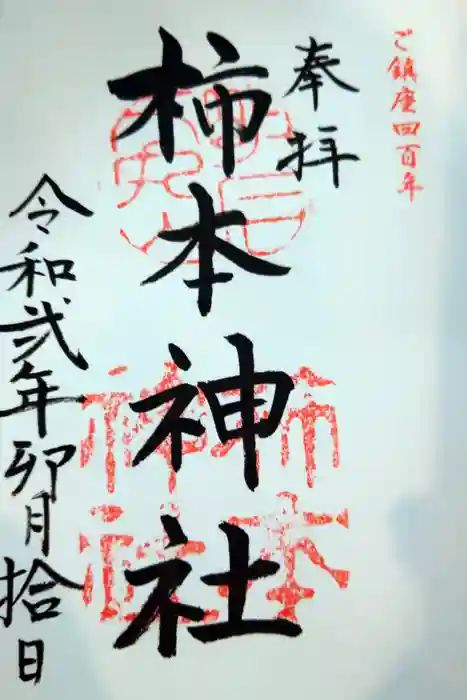 ご鎮座四百年
奉拝
柿本神社
令和弐年卯月拾日
柿本
神社